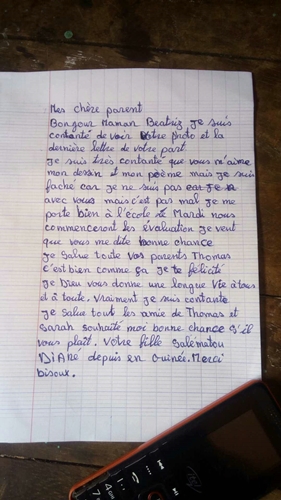 Mes chère parent
Bonjour Maman Beatriz Je suis
contanté de voir votre photo et la
dernière lettre de votre part
Je suis très contante que vous m'aime
mon dessin et mon poème mais je suis
faché car je ne suis pas car je n
avec vous mais c'est pas mal je me
porte bien à l'école le Mardi nous
commenceront les évaluation Je veut
que vous me dite bonne chance
Je Salue toute vos parents Thomas
c'est bien comme ça Je te félicité
Je Dieu vous donne une longue Vie à tous
et à toute. Vraiment Je suis contante
Je Salue tout les amie de Thomas et
Sarah souhaité moi bonne chance S'il
vous plaît. Votre fille Salématou
DiANE depuis en Guinée. Merci
bisoux.
itel